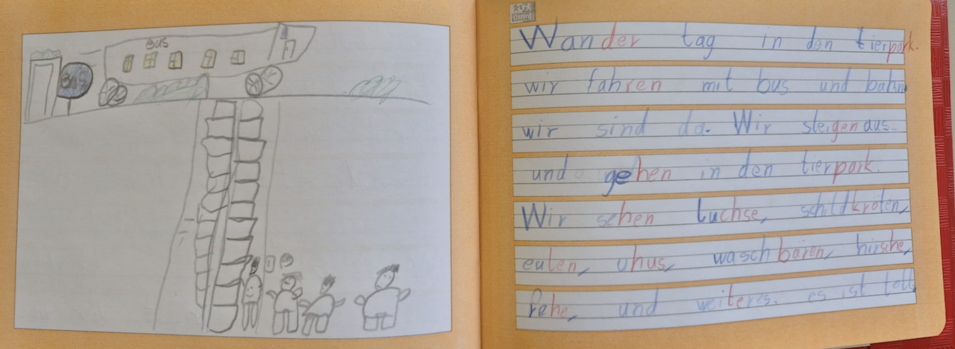 BUS
BUS
Wandertag in den tierpark.
wir fahren mit bus und bahn
wir sind da. Wir steigen aus.
und gehen in den tierpark.
Wir sehen luchse, schildkroten,
eulen, uhus, waschbären, hirsche,
Rehe, und weiteres. es ist toll